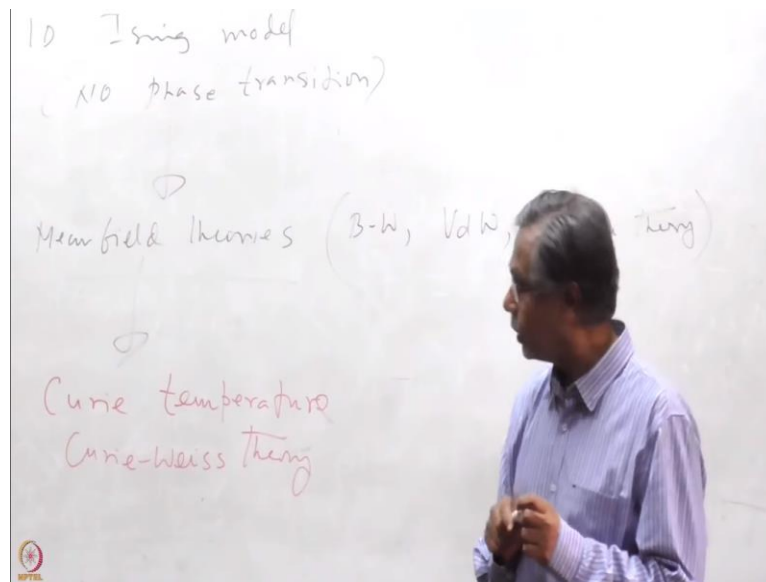 1D Ising model
(NO phase transition)
Meanfield theories (B-W, VdW, Theory)
Curie temperature
Curie-Weiss Theory
NPTEL